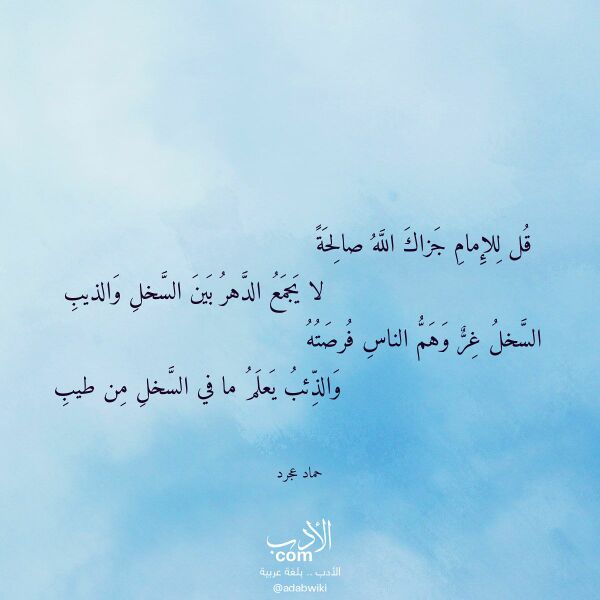 قُل لِلإِمامِ جَزاكَ اللَّهُ صالِحَةً
لا يَجمَعُ الدَّهرُ بَينَ السَّخلِ وَالذيبِ
السَّخلُ غِرٌّ وَهَمُّ الناسِ فُرصَتُهُ
وَالذِّئبُ يَعلَمُ ما في السَّخلِ مِن طيبِ
حماد عجرد
الأدب
com
الأدب .. بلغة عربية
@adabwiki